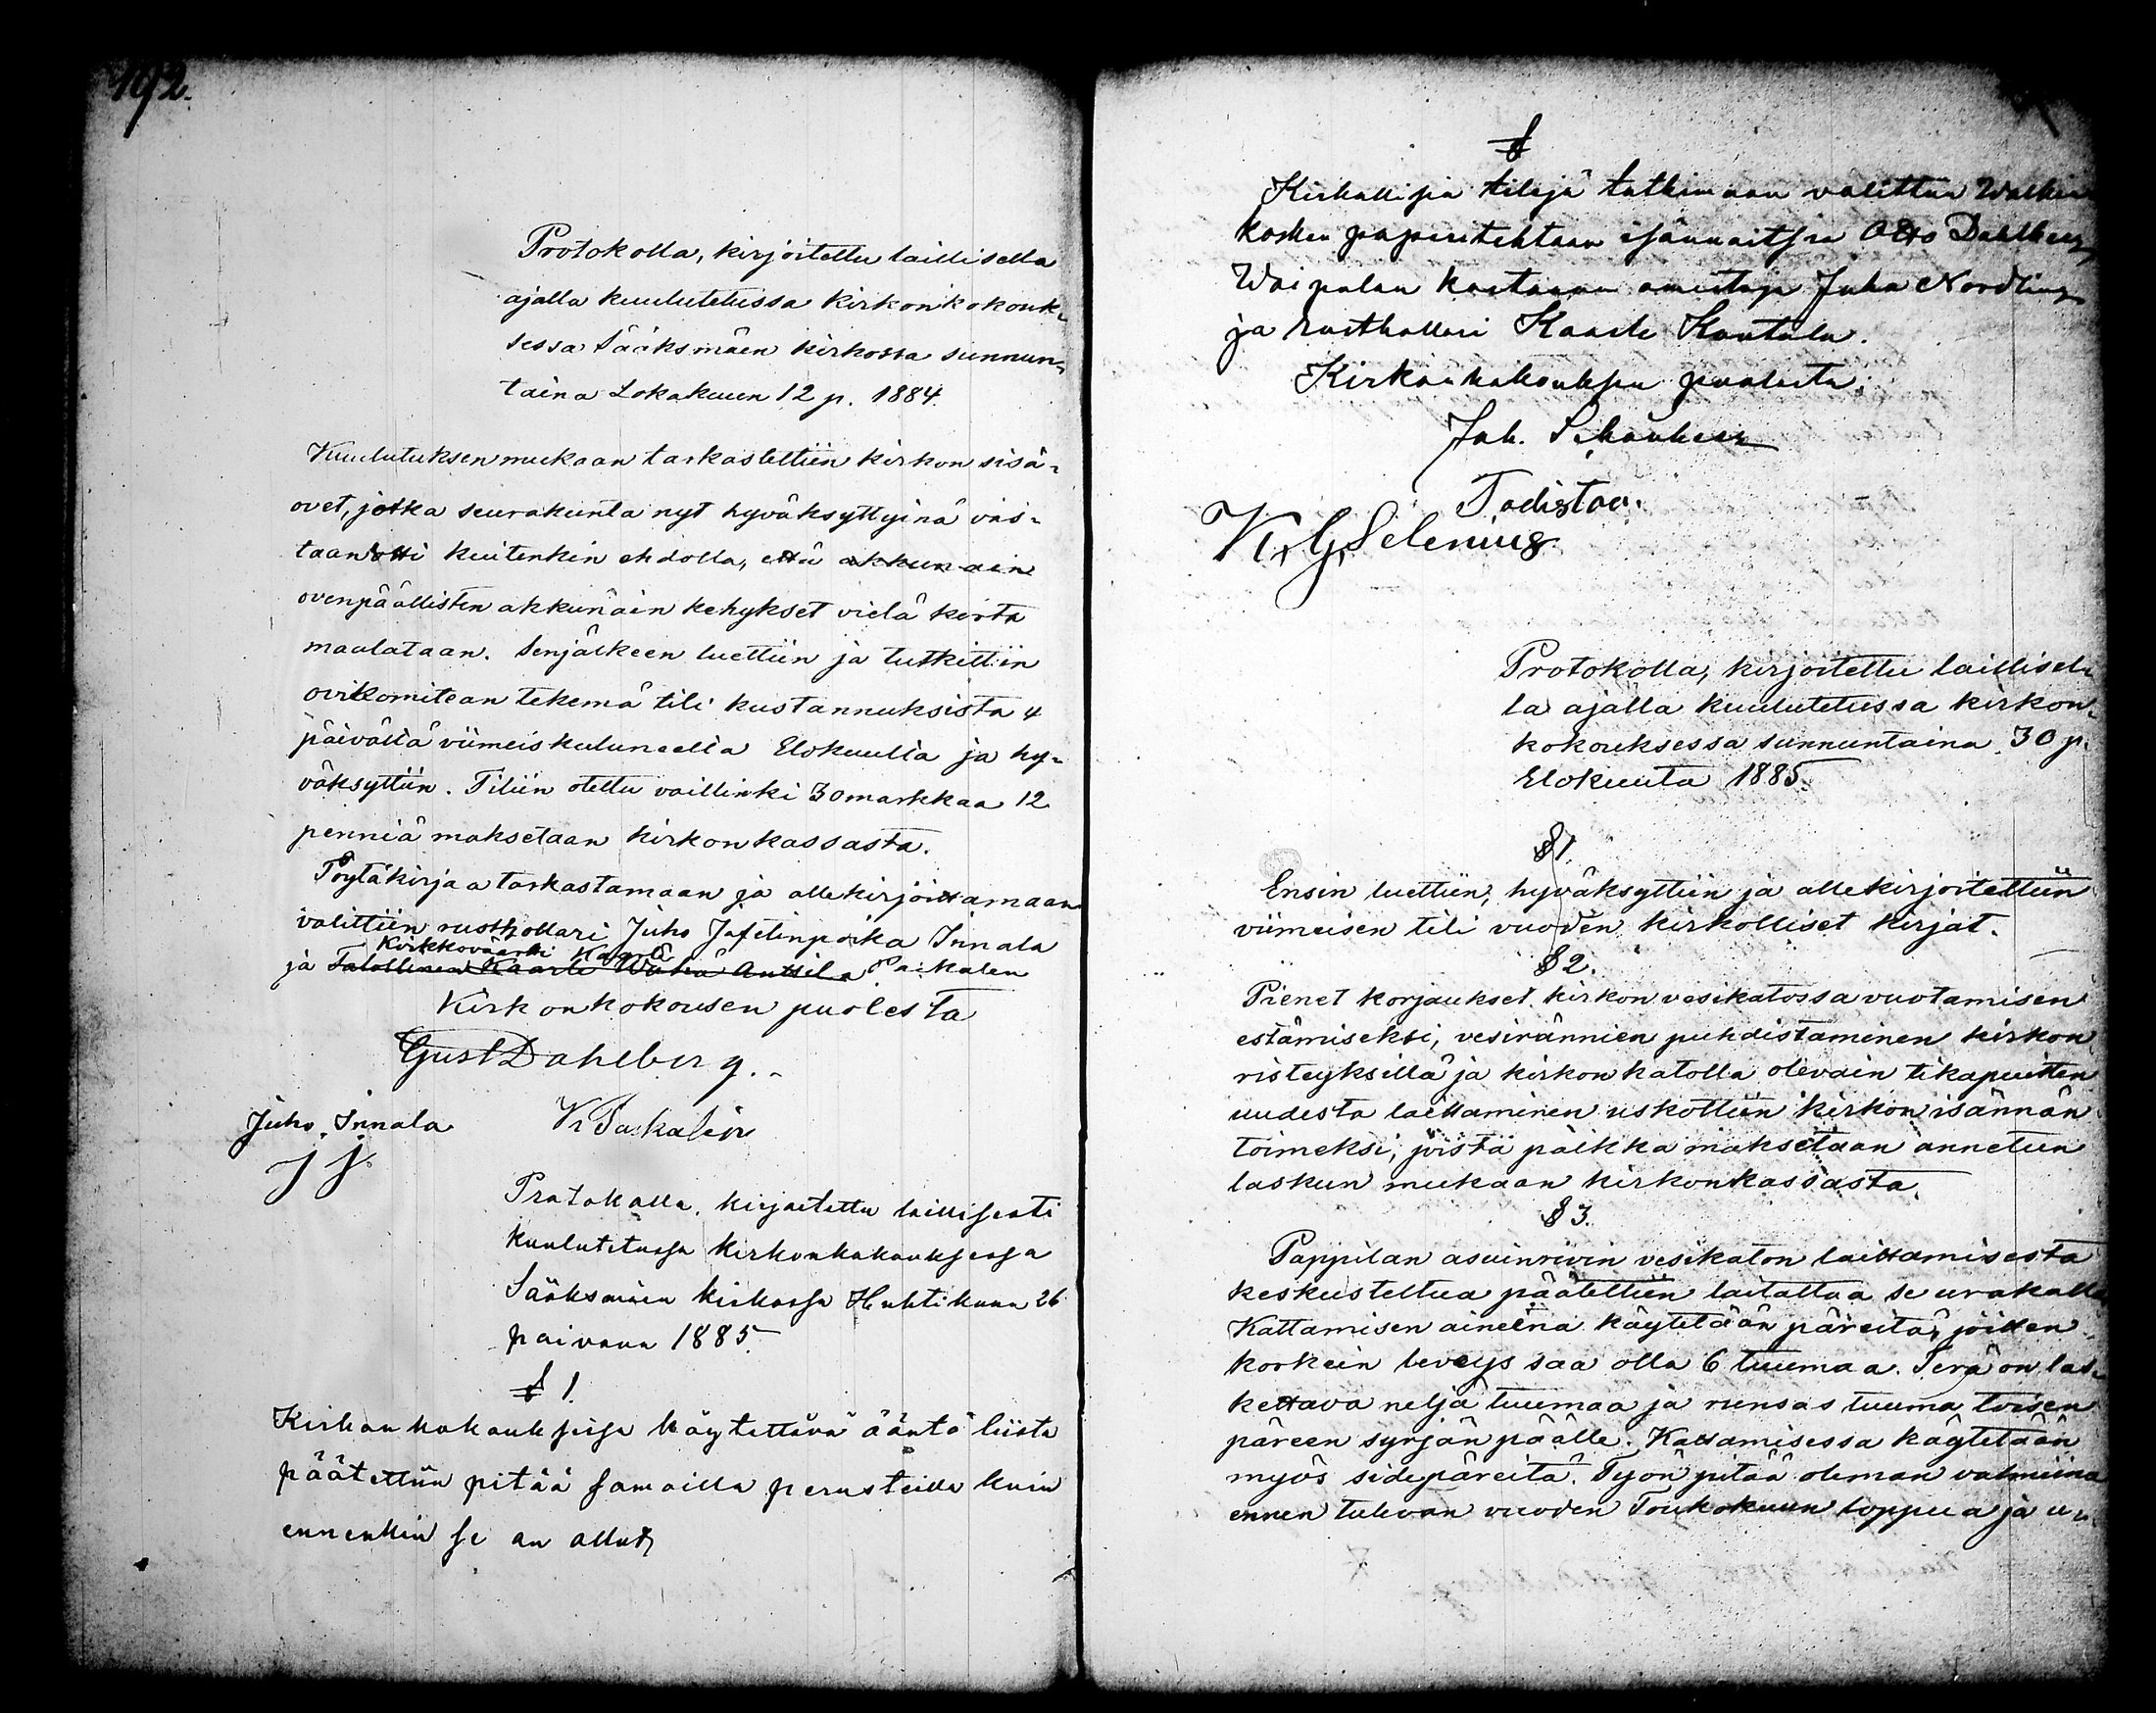 192.
Protokolla, kirjoitettu laillisella
ajalla kuulutetussa kirkonkokouk-
sessa Sääksmäen kirkossa sunnun-
taina Lokakuun 12 p. 1884.
Kuulutuksen mukaan tarkasteltiin kirkon sisä-
ovet, jotka seurakunta nyt hyväksyttyinä vas-
taanotti kuitenkin ehdolla, että akkunain
ovenpäällisten akkunain kehykset vielä kerta
maalataan. Senjälkeen luettiin ja tutkittiin
ovikomitean tekemä tili kustannuksista 4
päivältä viimeiskuluneelta Elokuulta ja hy-
väksyttiin. Tiliin otettu vaillinki 30 markkaa 12
penniä maksetaan kirkonkassasta.
Pöytäkirjaa tarkastamaan ja allekirjoittamaan
valittiin rusthollari Juho Jafetinpoika Innala
Kirkkoväärti Kaarle
ja Talollinen Kaarle Wähä Anttila Paikalen
Kirkonkokousen puolesta
Gust Dahlberg.
Juho Innala K Paikalein
J J.
Protokolla, kirjoitettu laillisesti
kuulutetussa kirkonkokouksessa
Sääksmäen kirkossa Huhtikuun 26
päivänä 1885.
§ 1.
Kirkonkokouksissa käytettävä ääntö liista
päätettiin pitää samoilla perusteilla kuin
ennenkin se on ollut,
§
Kirkollisia tilejä tutkimaan valittiin Walkia
kosken paperitehtaan isännöitsiä Otto Dahlberg
Woipalan kartanon omistaja Juho Nordling
ja rusthollari Kaarle Kantala.
Kirkonkokouksen puolesta;
Joh. Schönberg
Todistaa.
K. G. Selenius
Protokolla, kirjoitettu laillisel-
la ajalla kuulutetussa kirkon-
kokouksessa sunnuntaina 30 p.
Elokuuta 1885.
§ 1.
Ensin luettiin, hyväksyttiin ja allekirjoitettiin
viimeisen tili vuoden kirkolliset kirjat.
§ 2.
Pienet korjaukset kirkon vesikatossa vuotamisen
estämiseksi, vesirännien puhdistaminen kirkon
risteyksillä ja kirkon katolla olevain tikapuitten
uudesta laittaminen uskottiin kirkon isännän
toimeksi, joista palkka maksetaan annetun
laskun mukaan kirkonkassasta.
§ 3.
Pappilan asuinrivin vesikaton laittamisesta
keskusteltua päätettiin laitattaa se urakalla
Kattamisen aineena käytetään päreitä, joitten
korkein leveys saa olla 6 tuumaa. Terä on las-
kettava neljä tuumaa ja runsas tuuma toisen
päreen syrjän päälle. Kattamisessa käytetään
myös sidepäreitä. Työn pitää oleman valmiina
ennen tulevan vuoden Toukokuun loppua ja u-